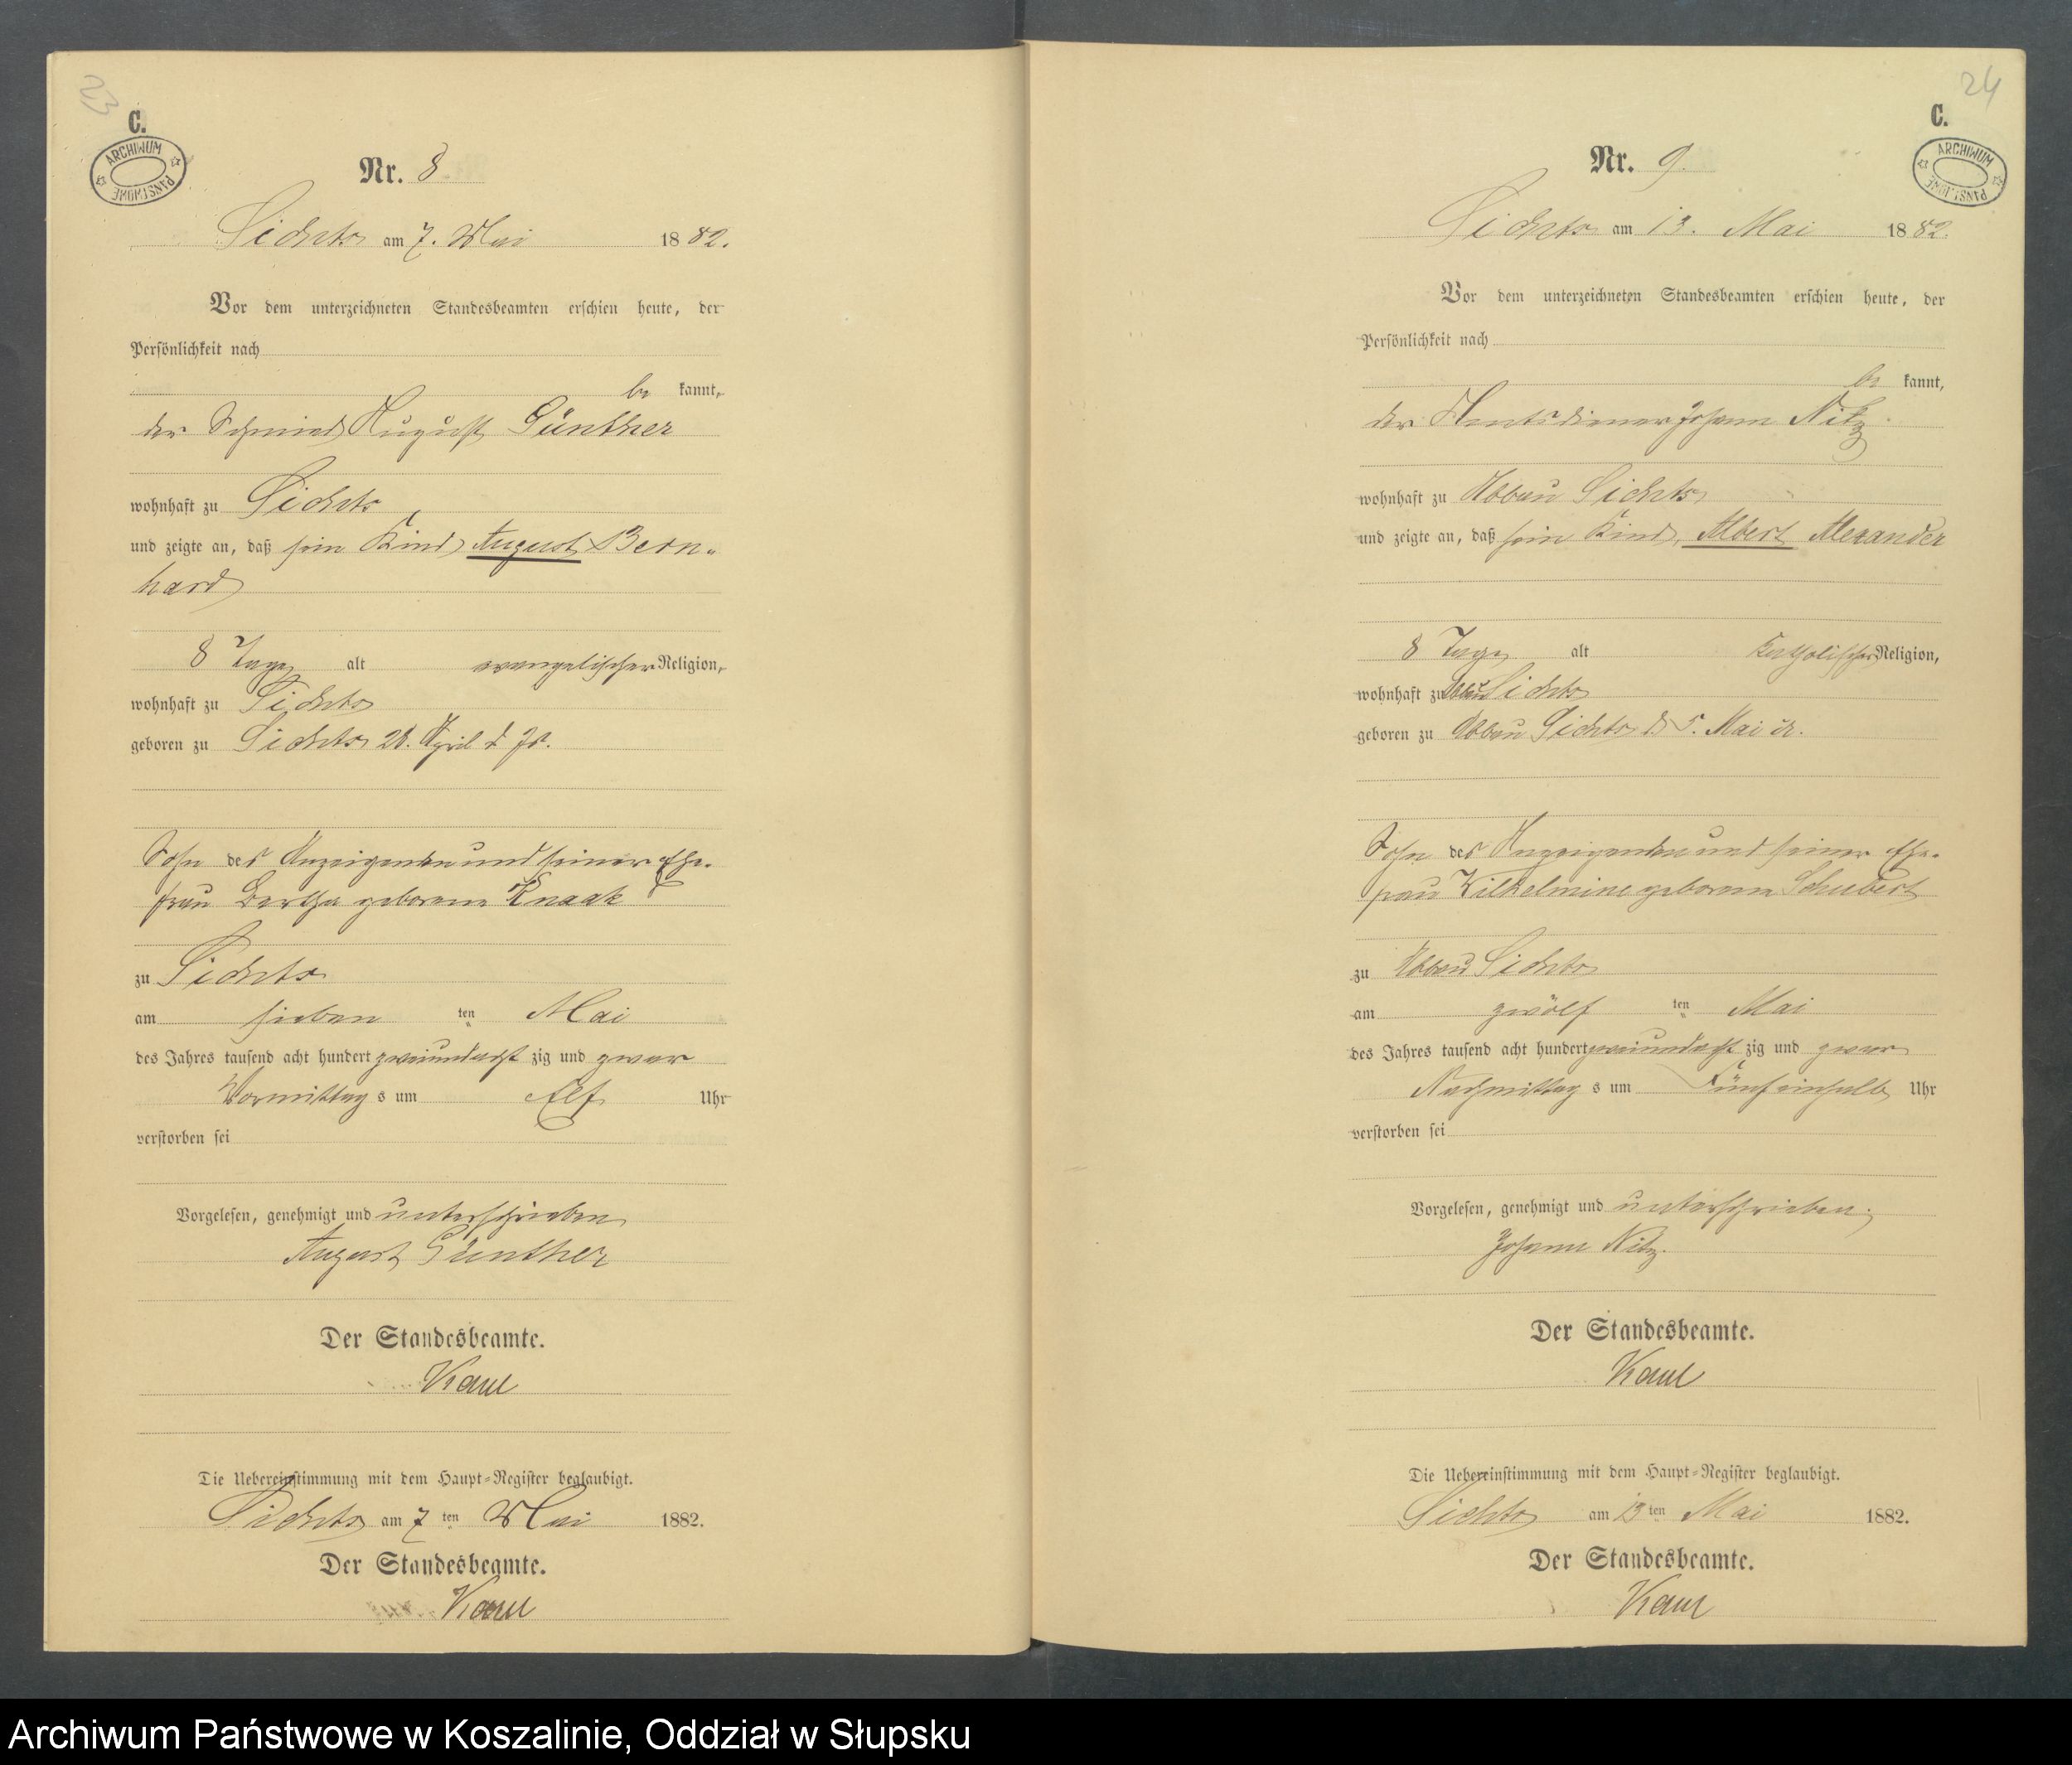 23
C.
ARCHIWUM PAŃSTWOWE
Nr. 8
Sichts am 7. Mai 1882.
Vor dem unterzeichneten Standesbeamten erschien heute, der
Persönlichkeit nach
be kannt,
der Schmied August Günther
wohnhaft zu Sichts
und zeigte an, daß sein Kind August Bern-
hard
8 Tage alt evangelischer Religion,
wohnhaft zu Sichts
geboren zu Sichts 28. April d. Js.
Sohn des Anzeigenden und seiner Ehe-
frau Bertha geborene Knaak
zu Sichts
am sieben ten Mai
des Jahres tausend acht hundert zweiundacht zig und zwar
Vormittag s um elf Uhr
verstorben sei
Vorgelesen, genehmigt und unterschrieben
August Günther
Der Standesbeamte.
Die Uebereinstimmung mit dem Haupt-Register beglaubigt.
Sichts am 7 ten Mai 1882.
Der Standesbeamte.
24
C.
ARCHIWUM PAŃSTWOWE
Nr. 9.
Sichts am 13. Mai 1882.
Vor dem unterzeichneten Standesbeamten erschien heute, der
Persönlichkeit nach
be kannt,
der Amtsdiener Johann Nitz
wohnhaft zu Abbau Sichts
und zeigte an, daß sein Kind, Albert Alexander
8 Tage alt katholischer Religion,
wohnhaft zu Abbau Sichts
geboren zu Abbau Sichts d. 5. Mai
Sohn des Anzeigenden und seiner Ehe-
frau Wilhelmine geborene Schubert
zu Abbau Sichts
am zwölf ten Mai
des Jahres tausend acht hundert zweiundacht zig und zwar
Nachmittag s um Fünfeinhalb Uhr
verstorben sei
Vorgelesen, genehmigt und unterschrieben.
Johann Nitz.
Der Standesbeamte.
Die Uebereinstimmung mit dem Haupt-Register beglaubigt.
Sichts am 13 ten Mai 1882.
Der Standesbeamte.
Archiwum Państwowe w Koszalinie, Oddział w Słupsku